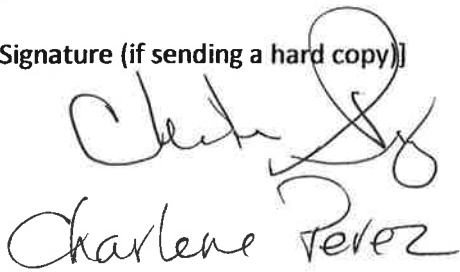 Signature (if sending a hard copy)]
Charlene Perez